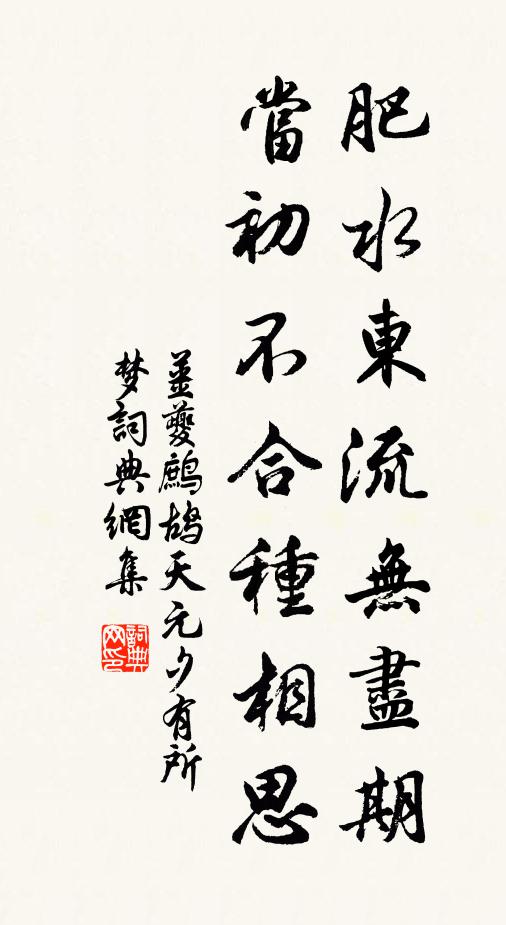 肥水東流無盡期
當初不合種相思
薑夔鷓鴣天元夕有所
梦詞典網集
詞典网印